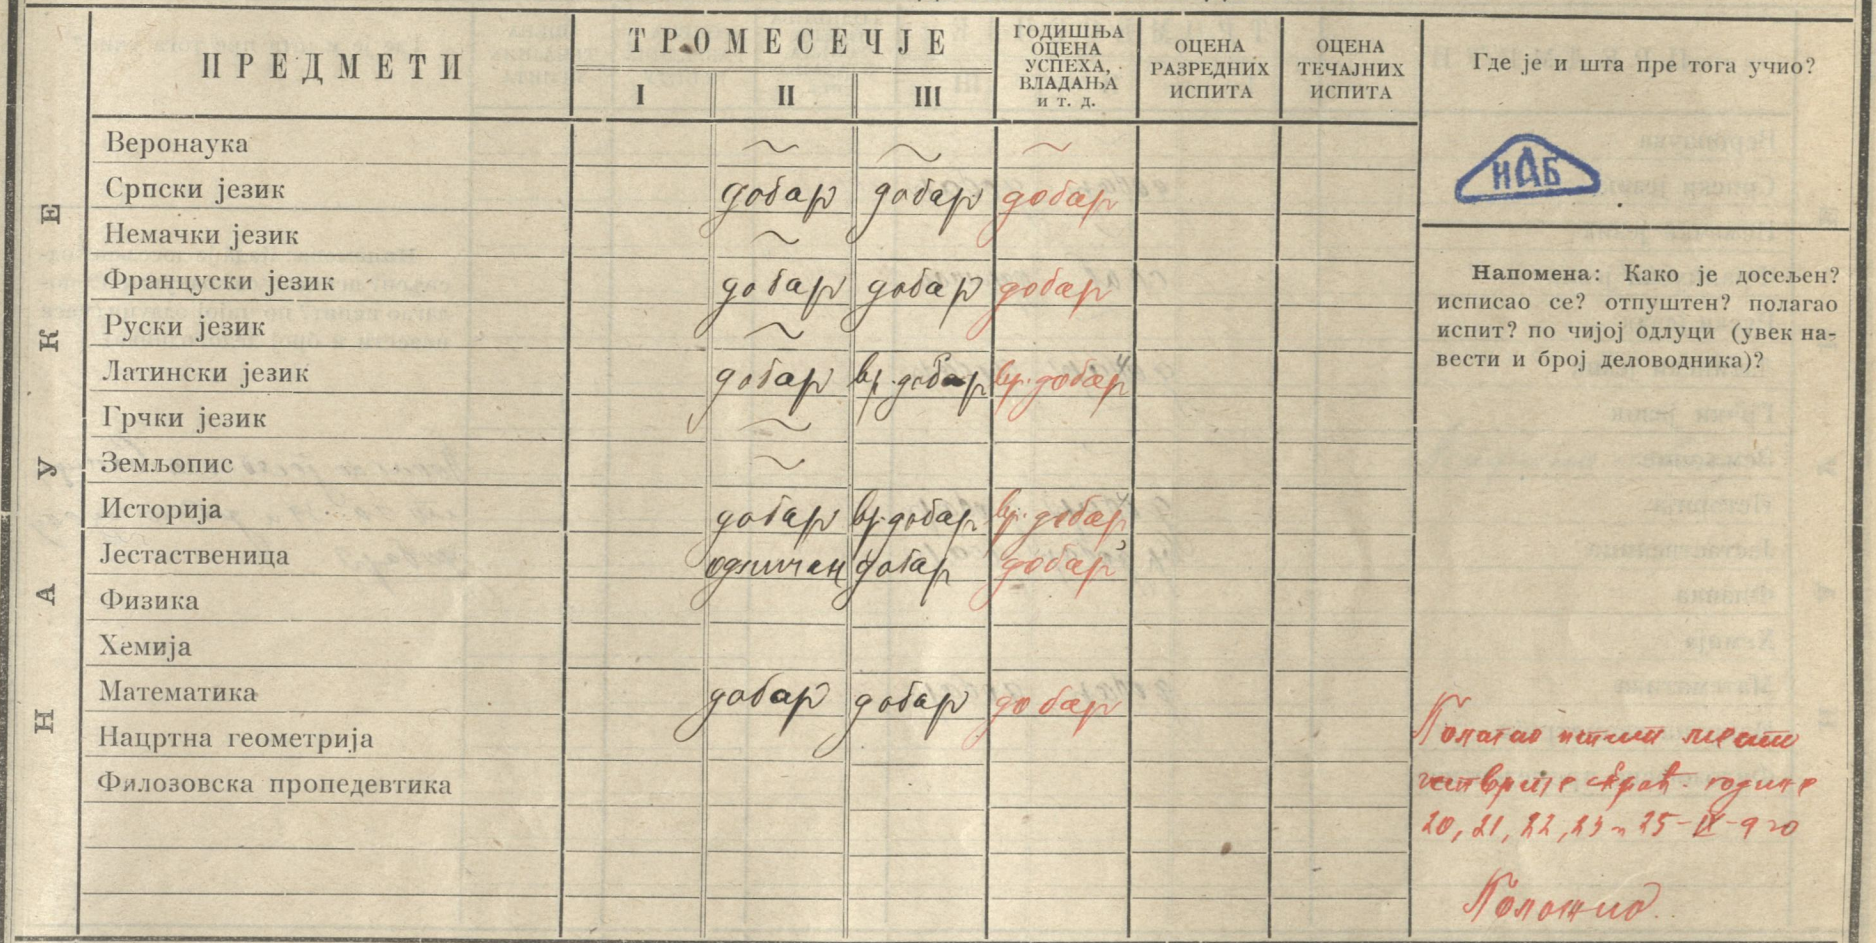 ПРЕДМЕТИ
ТРОМЕСЕЧЈЕ
I II III
ГОДИШЊА
ОЦЕНА
УСПЕХА,
ВЛАДАЊА
и т. д.
ОЦЕНА
РАЗРЕДНИХ
ИСПИТА
ОЦЕНА
ТЕЧАЈНИХ
ИСПИТА
Где је и шта пре тога учио?
НАУКЕ
Веронаука ~ ~ ~
Српски језик добар добар добар
Немачки језик ~
Француски језик добар добар добар
Руски језик ~
Латински језик добар вр. добар вр. добар
Грчки језик ~
Земљопис ~
Историја добар вр. добар вр. добар
Јестаственица одличан добар добар
Физика
Хемија
Математика добар добар добар
Нацртна геометрија
Филозовска пропедевтика
НАБ
Напомена: Како је досељен?
исписао се? отпуштен? полагао
испит? по чијој одлуци (увек на-
вести и број деловодника)?
Полагао испит
четврте скраћ. године
20, 21, 22, 23 и 25-IX-920
Положио.